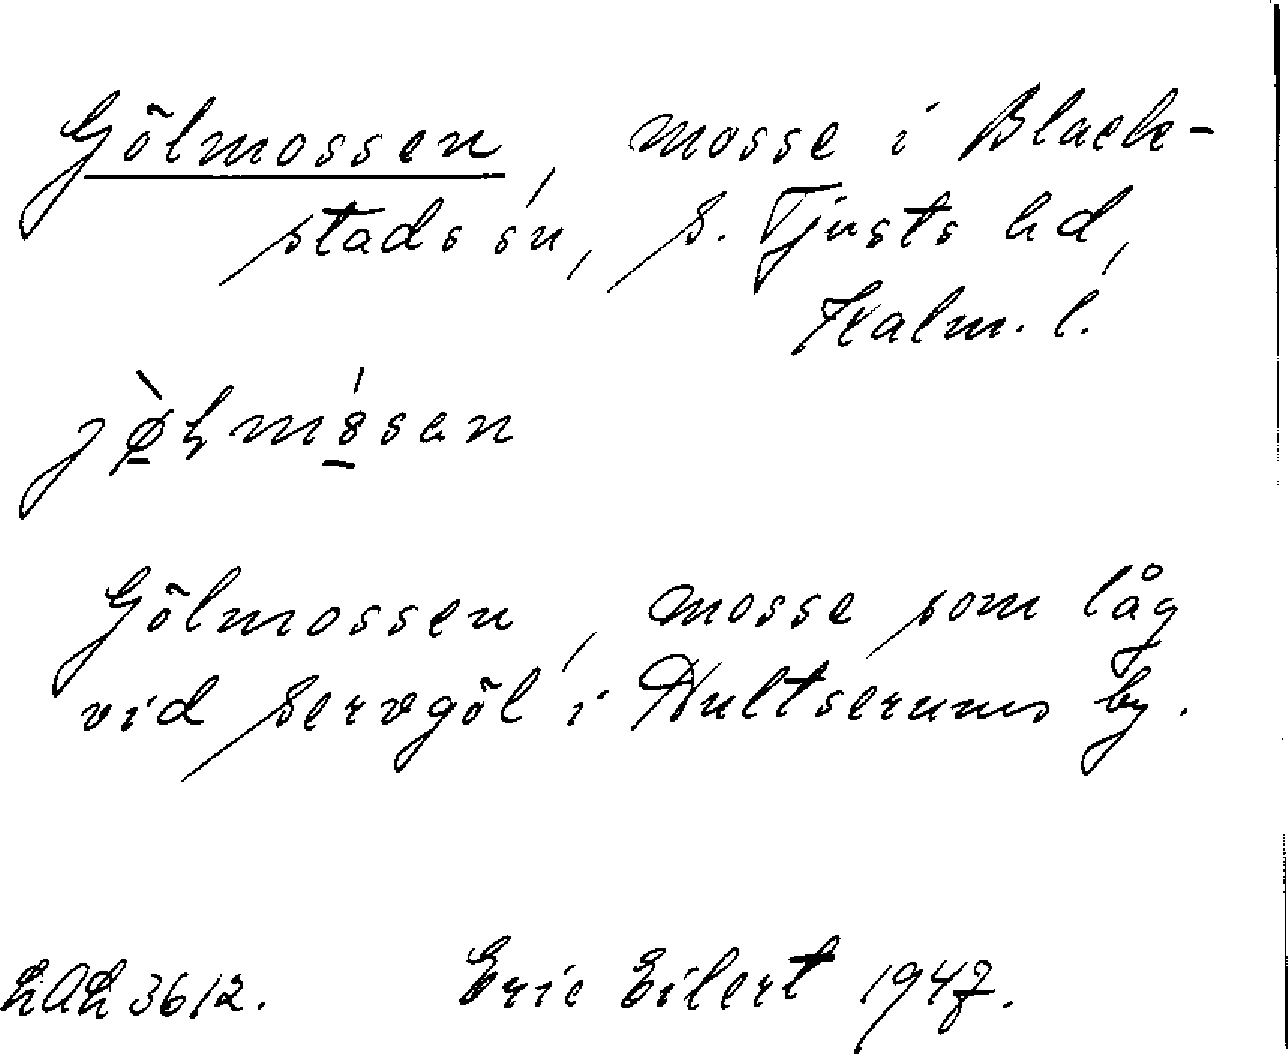 Gölmossen, mosse i Black-
stads sn, S. Tjusts hd,
Kalm. l.
Gölmossen, mosse som låg
vid Servgöl i Hultserums by.
LAL 3612. Eric Eilert 1947.